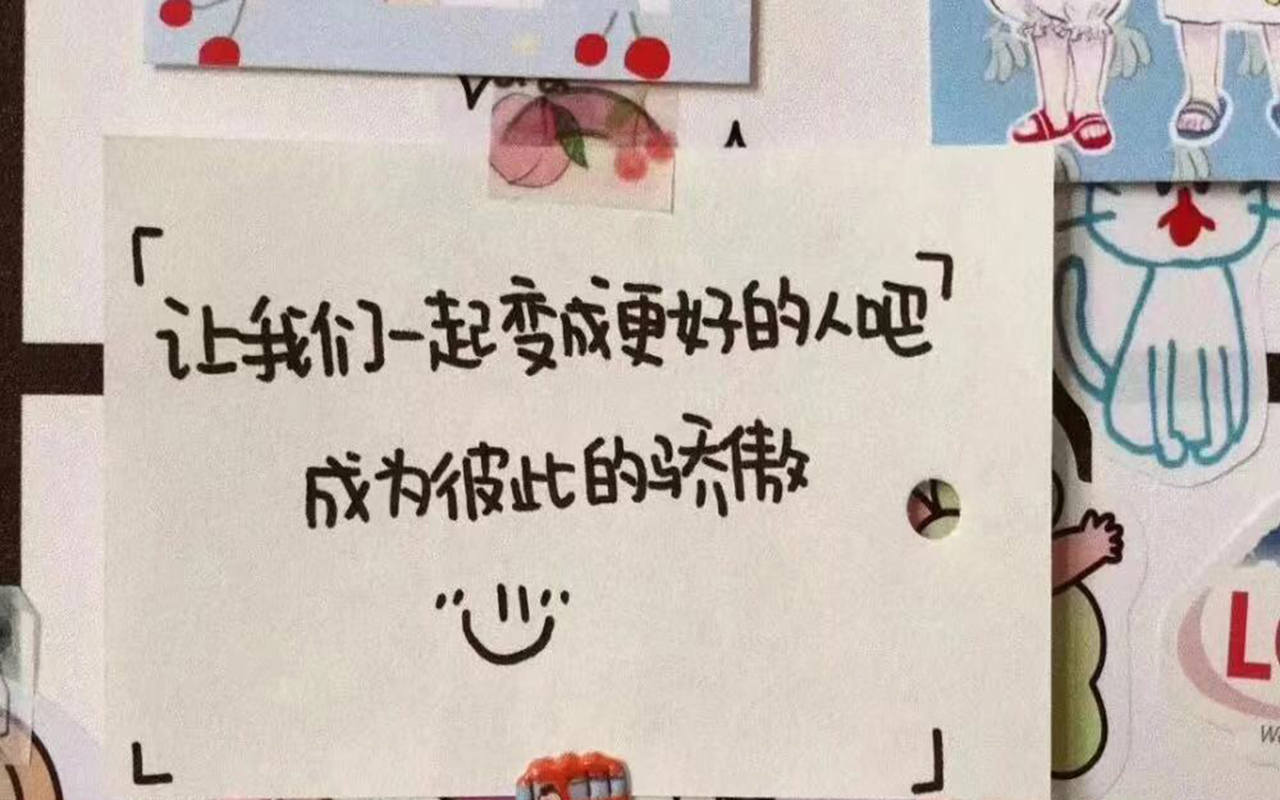 「让我们一起变成更好的人吧」
成为彼此的骄傲